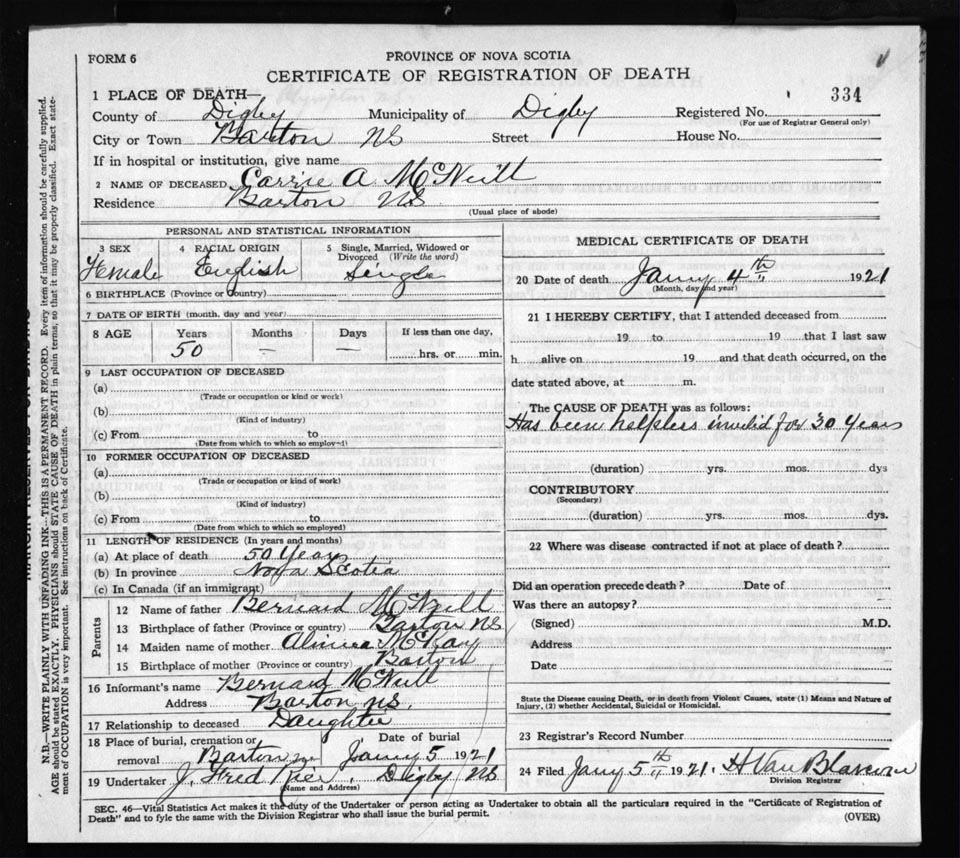 FORM 6
PROVINCE OF NOVA SCOTIA
CERTIFICATE OF REGISTRATION OF DEATH
334
1 PLACE OF DEATH—
County of Digby Municipality of Digby Registered No.
(For use of Registrar General only)
City or Town Barton NS Street House No.
If in hospital or institution, give name
2 NAME OF DECEASED Carrie A McNeill
Residence Barton NS
(Usual place of abode)
PERSONAL AND STATISTICAL INFORMATION
3 SEX 4 RACIAL ORIGIN 5 Single, Married, Widowed or Divorced (Write the word)
Female English Single
6 BIRTHPLACE (Province or Country)
7 DATE OF BIRTH (month, day and year)
8 AGE Years Months Days If less than one day,
50 — — hrs. or min.
9 LAST OCCUPATION OF DECEASED
(a)
(Trade or occupation or kind or work)
(b)
(Kind of industry)
(c) From to
(Date from which to which so employed)
10 FORMER OCCUPATION OF DECEASED
(a)
(Trade or occupation or kind of work)
(b)
(Kind of industry)
(c) From to
(Date from which to which so employed)
11 LENGTH OF RESIDENCE (In years and months)
(a) At place of death 50 Years
(b) In province Nova Scotia
(c) In Canada (if an immigrant)
Parents
12 Name of father Bernard McNeill
13 Birthplace of father (Province or country) Barton NS
14 Maiden name of mother McKay
15 Birthplace of mother (Province or country) Barton
16 Informant's name Bernard McNeill
Address Barton NS.
17 Relationship to deceased Daughter
18 Place of burial, cremation or removal Barton Date of burial Jany 5 1921
19 Undertaker J. Fred Digby NS
(Name and Address)
MEDICAL CERTIFICATE OF DEATH
20 Date of death Jany 4th 1921
(Month, day and year)
21 I HEREBY CERTIFY, that I attended deceased from
19 to 19 that I last saw
h alive on 19 and that death occurred, on the
date stated above, at m.
The CAUSE OF DEATH was as follows:
Has been helpless invalid for 30 Years
(duration) yrs. mos. dys
CONTRIBUTORY
(Secondary)
(duration) yrs. mos. dys.
22 Where was disease contracted if not at place of death?
Did an operation precede death? Date of
Was there an autopsy?
(Signed) M.D.
Address
Date
State the Disease causing Death, or in death from Violent Causes, state (1) Means and Nature of
Injury, (2) whether Accidental, Suicidal or Homicidal.
23 Registrar's Record Number
24 Filed Jany 5th 1921. H Van Blarcom
Division Registrar
SEC. 46—Vital Statistics Act makes it the duty of the Undertaker or person acting as Undertaker to obtain all the particulars required in the "Certificate of Registration of
Death" and to fyle the same with the Division Registrar who shall issue the burial permit.
(OVER)
N.B.—WRITE PLAINLY WITH UNFADING INK—THIS IS A PERMANENT RECORD. Every item of information should be carefully supplied.
AGE should be stated EXACTLY. PHYSICIANS should STATE CAUSE OF DEATH in plain terms, so that it may be properly classified. Exact state-
ment of OCCUPATION is very important. See instructions on back of Certificate.